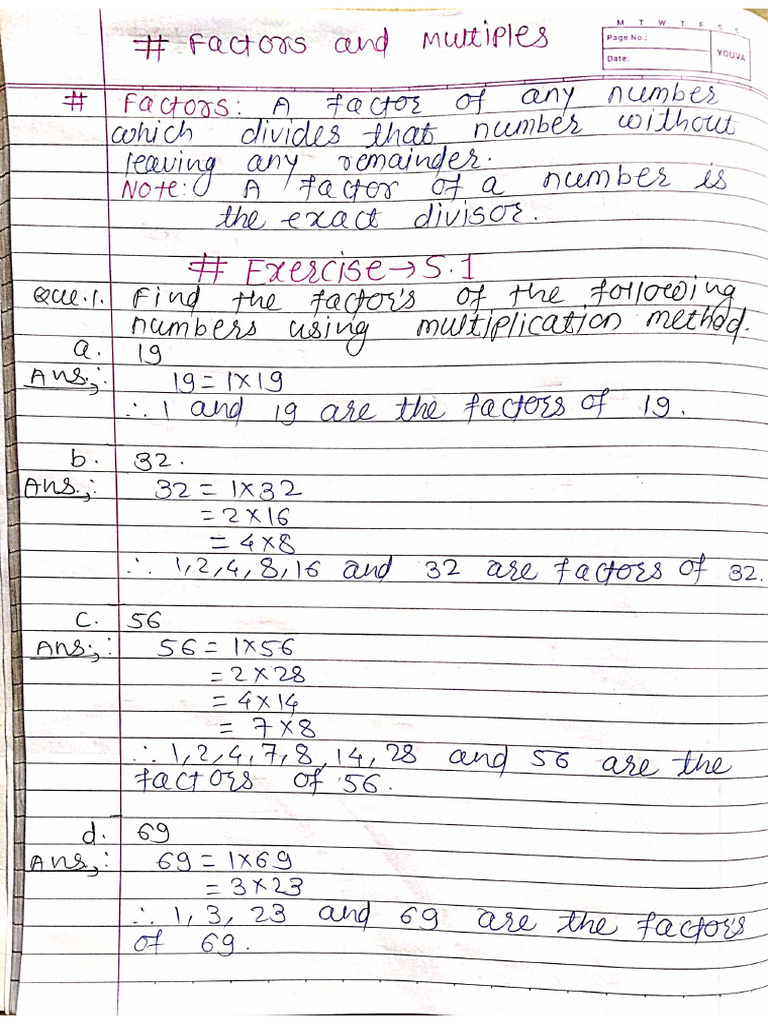 # Factors and Multiples
M T W T F S S
Page No.:
Date:
YOUVA
# Factors: A factor of any number
which divides that number without
leaving any remainder.
Note: A factor of a number is
the exact divisor.
# Exercise → 5.1
Que.1. Find the factor's of the following
numbers using multiplication method.
a. 19
Ans;: 19 = 1×19
∴ 1 and 19 are the factors of 19.
b. 32.
Ans;: 32 = 1×32
= 2×16
= 4×8
∴ 1,2,4,8,16 and 32 are factors of 32.
c. 56
Ans;: 56 = 1×56
= 2×28
= 4×14
= 7×8
∴ 1,2,4,7,8,14,28 and 56 are the
factors of 56.
d. 69
Ans;: 69 = 1×69
= 3×23
∴ 1, 3, 23 and 69 are the factors
of 69.